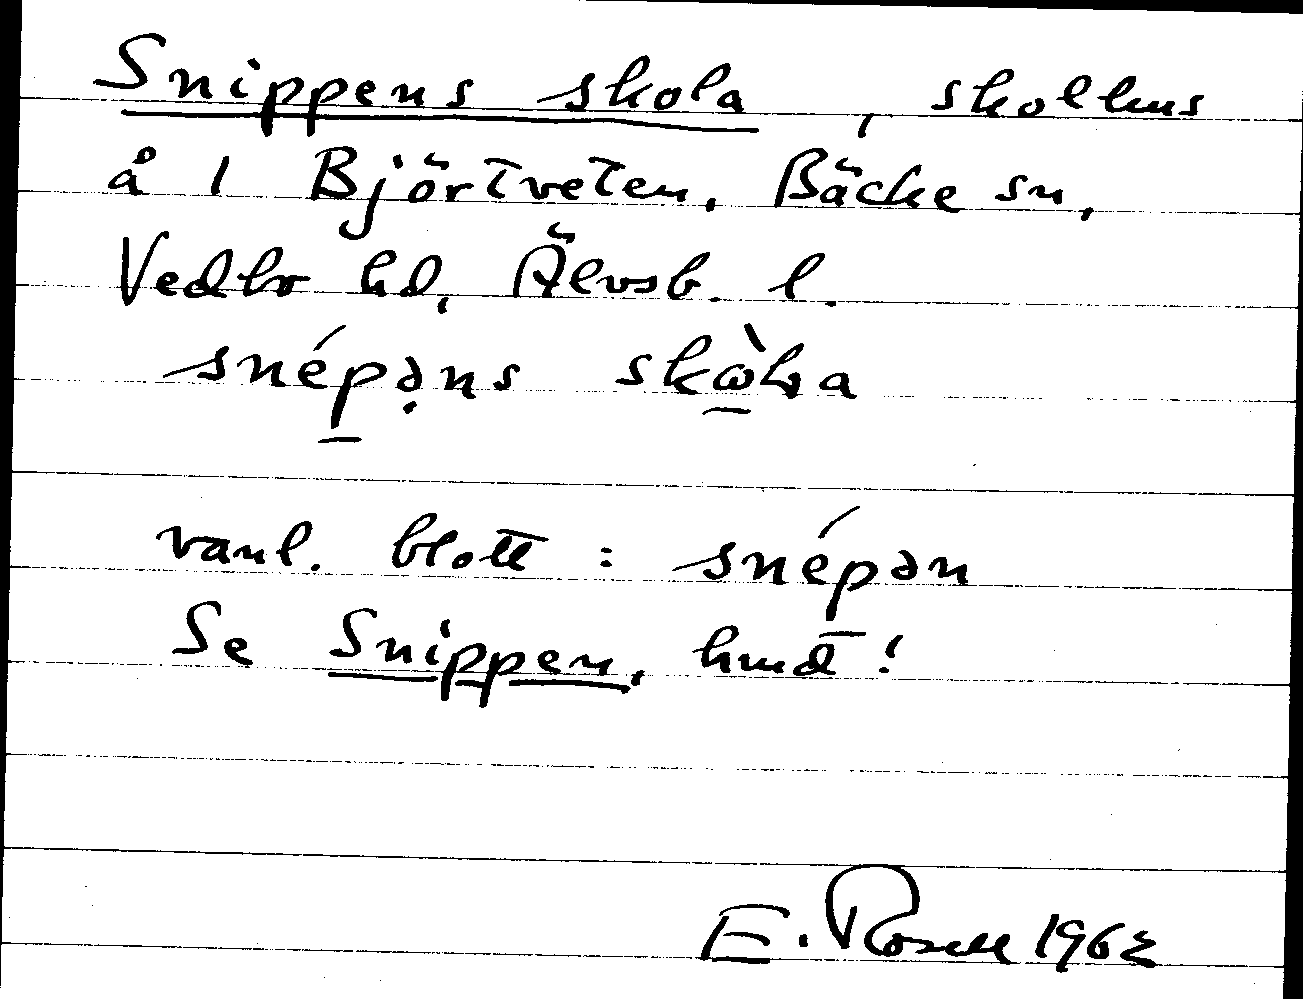 Snippens skola, skolhus
å 1 Björtveten, Bäcke sn,
Vedbo hd, Älvsb. l.
snépə̣ns skὼla
vanl. blott : snépən
Se Snippen, hmd!
E. Rosell 1962